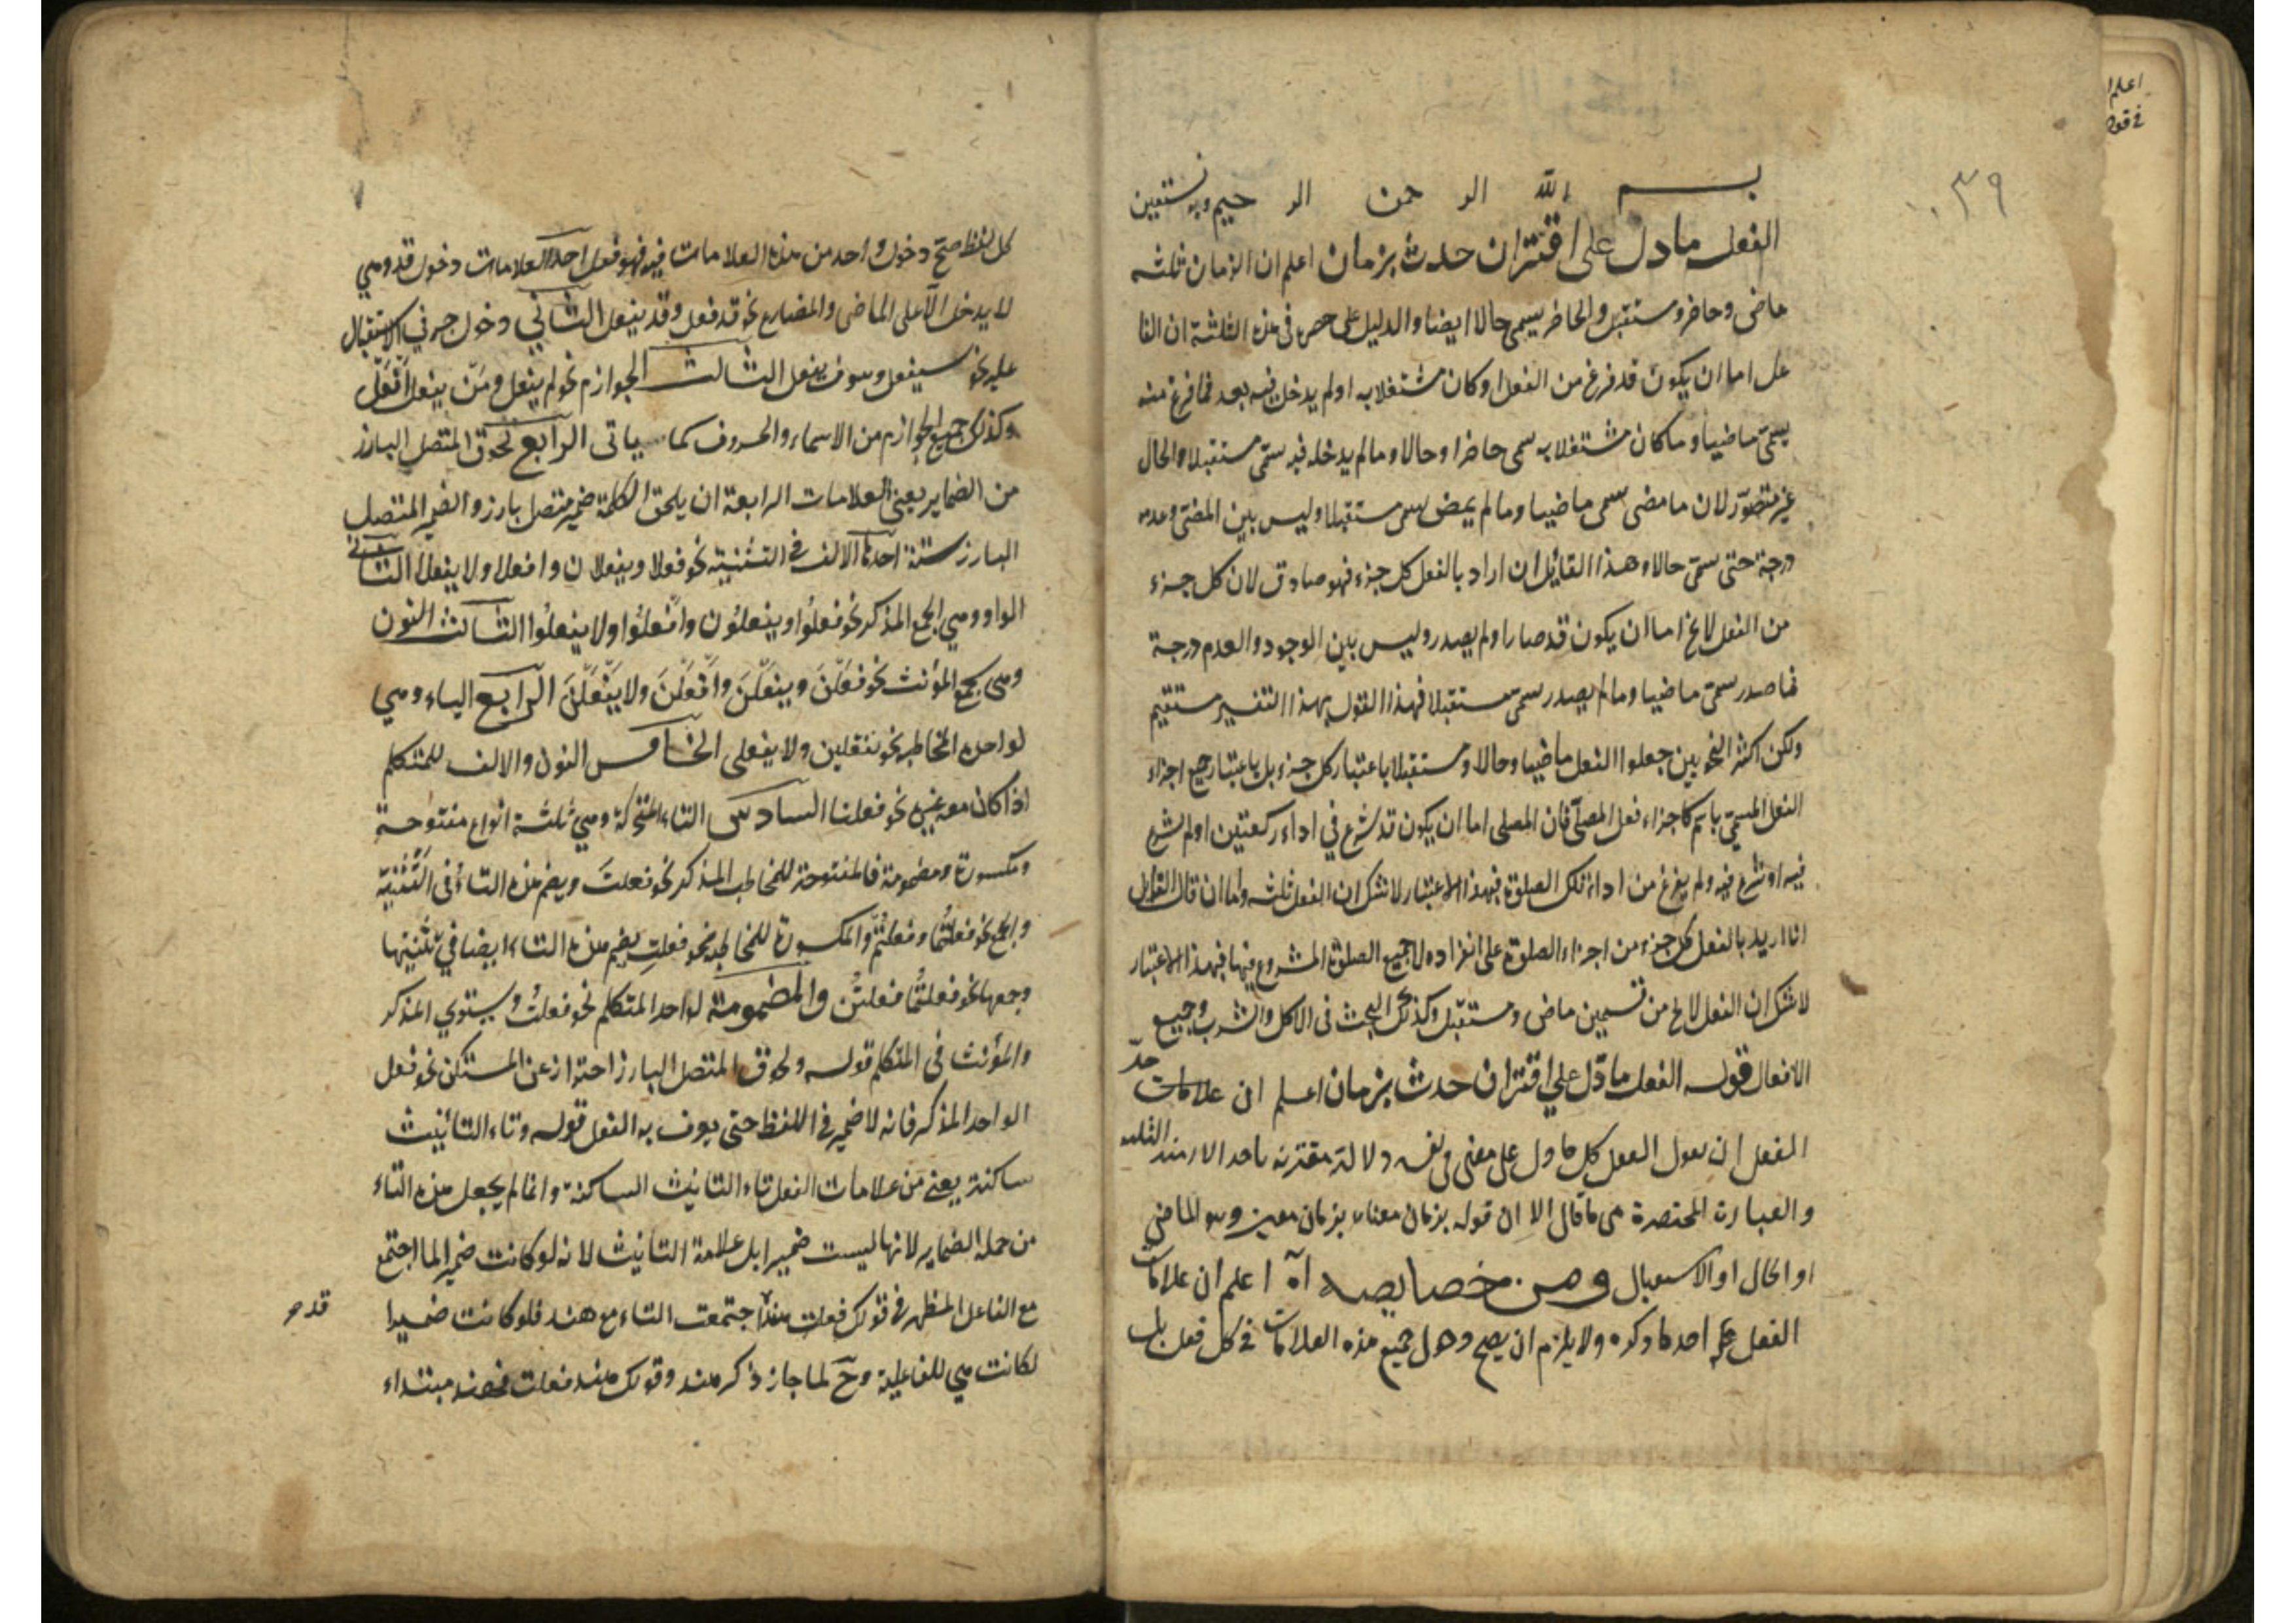 اعلم
في قوله
٣٩
بسم الله الرحمن الرحيم وبه نستعين
الفعل ما دل على اقتران حدث بزمان اعلم ان الزمان ثلثه
ماضى وحاضر ومستقبل والحاضر يسمى حالا ايضا والدليل على حصره فى هذه الثلثة ان الفا
عل اما ان يكون قد فرغ من الفعل او كان مشتغلا به او لم يدخل فيه بعد فما فرغ منه
يسمى ماضيا وما كان مشتغلا به سمى حاضرا وحالا وما لم يدخله فيه سمّى مستقبلا والحال
غير متصوّر لان ما مضى سمى ماضيا وما لم يمض سمى مستقبلا وليس بين المضى وعدمه
درجة حتى سمّى حالا وهذا القائل ان اراد بالفعل كل جزء فهو صادق لان كل جزء
من الفعل لا يخ اما ان يكون قد صار او لم يصدر وليس بين الوجود والعدم درجة
فما صدر سمى ماضيا وما لم يصدر سمى مستقبلا فهذا القول بهذا التفسير مستقيم
ولكن اكثر النحويين جعلوا الفعل ماضيا وحالا ومستقبلا باعتبار كل جزء بل باعتبار جميع اجزاء
الفعل المسمّى باسم كاجزاء فعل المصلّى فان المصلى اما ان يكون قد شرع في اداء ركعتين او لم يشرع
فيه او شرع فيه ولم يفرغ من اداء تلك الصلوة فبهذا الاعتبار لا شك ان الفعل ثلثه واما ان قال القائل
انا اريد بالفعل كل جزء من اجزاء الصلوة على انفراده لا جميع الصلوة المشروع فيها فبهذا الاعتبار
لا شك ان الفعل لا يخ من قسمين ماض ومستقبل وكذلك البحث فى الاكل والشرب وجميع
الافعال قوله الفعل ما دّل علي اقتران حدث بزمان اعلم ان علامات حدّ
الفعل ان يقول الفعل كل ما دل على معنى فى نفسه دلالة مقترنه باحد الازمنه الثلثه
والعبارة المختصرة هى ما قال الا ان قوله بزمان معناه بزمان معين وهو الماضي
او الحال او الاستقبال ومن خصايصه اه اعلم ان علامات
الفعل احد ما ذكره ولا يلزم ان يصح دخول جميع هذه العلامات في كل فعل بل
كل لفظ صحّ دخول واحد من هذه العلامات فيه فهو فعل احد العلامات دخول قد وهي
لا يدخل الّا على الماضى والمضارع نحو قد فعل وقد يفعل الثاني دخول حرفي الاستقبال
عليه نحو سيفعل وسوف يفعل الثالث الجوازم نحو لم يفعل ومَنْ يفعل اَفعل
وكذلك جميع الجوازم من الاسماء والحروف كما سياتى الرابع لحوق المتصل البارز
من الضماير يعنى العلامات الرابعة ان يلحق الكلمة ضمير متصل بارز والضمير المتصل
البارز ستة احدها الالف فى التثنيه نحو فعلا ويفعلان وافعلا ولا يفعلا الثاني
الواو وهي لجمع المذكر نحو فعلُوا ويفعلُون وافعلُوا ولا يفعلُوا الثالث النون
وهى لجمع المؤنث نحو فعلْنَ ويفعلْنَ وافعلْنَ ولا يَفْعَلْنَ الرابع الياء وهي
لواحدة المخاطبه نحو تفعلين ولا تفعلى الخامس النون والالف للمتكلم
اذا كان معه غيره نحو فعلنا السادس التاء المتحركة وهي ثلثة انواع مفتوحة
ومكسورة ومضمومة فالمفتوحة للمخاطب المذكر نحو فعلتَ ويضم هذه التاء فى التَّثنية
والجمع نحو فعلتُما وفعلتُمْ والمكسورة للمخاطبه نحو فعلتِ يضم هذه التاء ايضا في تثنيتها
وجمعها نحو فعلتُما فعلتُن والمضمومة لواحد المتكلم نحو فعلتُ ويستوي المذكر
والمؤنث فى المتكلم قوله ولحوق المتصل البارز احتراز عن المستكن نحو فعل
الواحد المذكر فانه لا ضمير فى اللفظ حتى يعرف به الفعل قوله وتاء التأنيث
ساكنة يعنى من علامات الفعل تاء التانيث الساكنة وانما لم يجعل هذه التاء
من جملة الضماير لانها ليست ضميرا بل علامة التأنيث لانه لو كانت ضميرا لما اجتمع
مع الفاعل المظهر فى قولك فعلت هند اجتمعت التاء مع هند فلو كانت ضميرا
قد
لكانت هي للفاعلية وح لما جاز ذكر هند وقولك هند فعلت فهند مبتداء